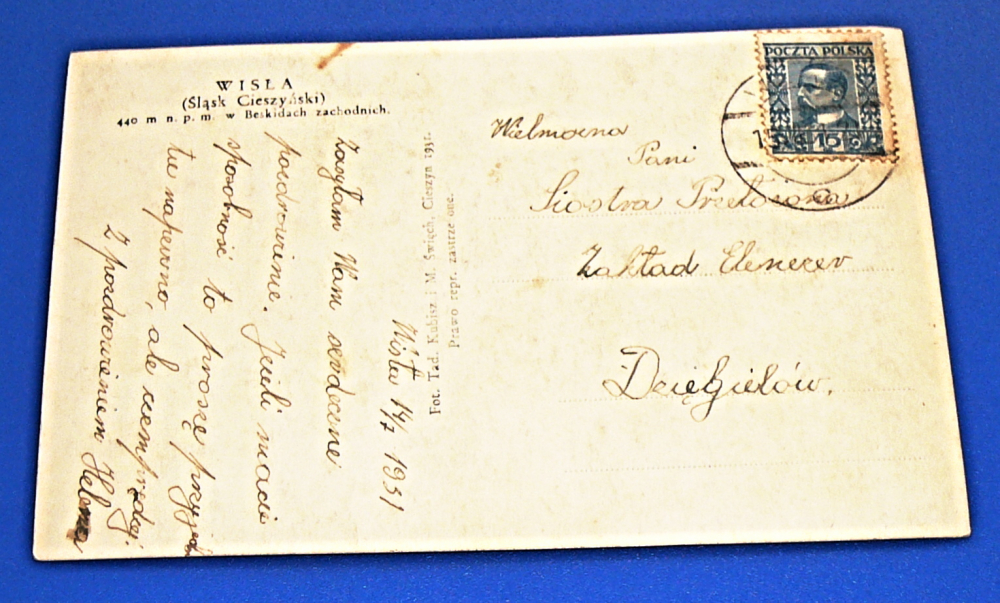 WISŁA
(Śląsk Cieszyński)
440 m n. p. m. w Beskidach zachodnich.
Wisła 14/7 1931
Zasyłam Wam serdeczne
pozdrowienie. Jeżeli macie
sposobność to proszę przyjść
tu napewno, ale czemprędzej.
Z pozdrowieniem Helena
Fot. Tad. Kubisz i M. Święch, Cieszyn 1931.
Prawo repr. zastrzeżone.
POCZTA POLSKA
15
Wielmożna
Pani
Siostra Przełożona
Zakład Ebenezer
Dzięgielów.